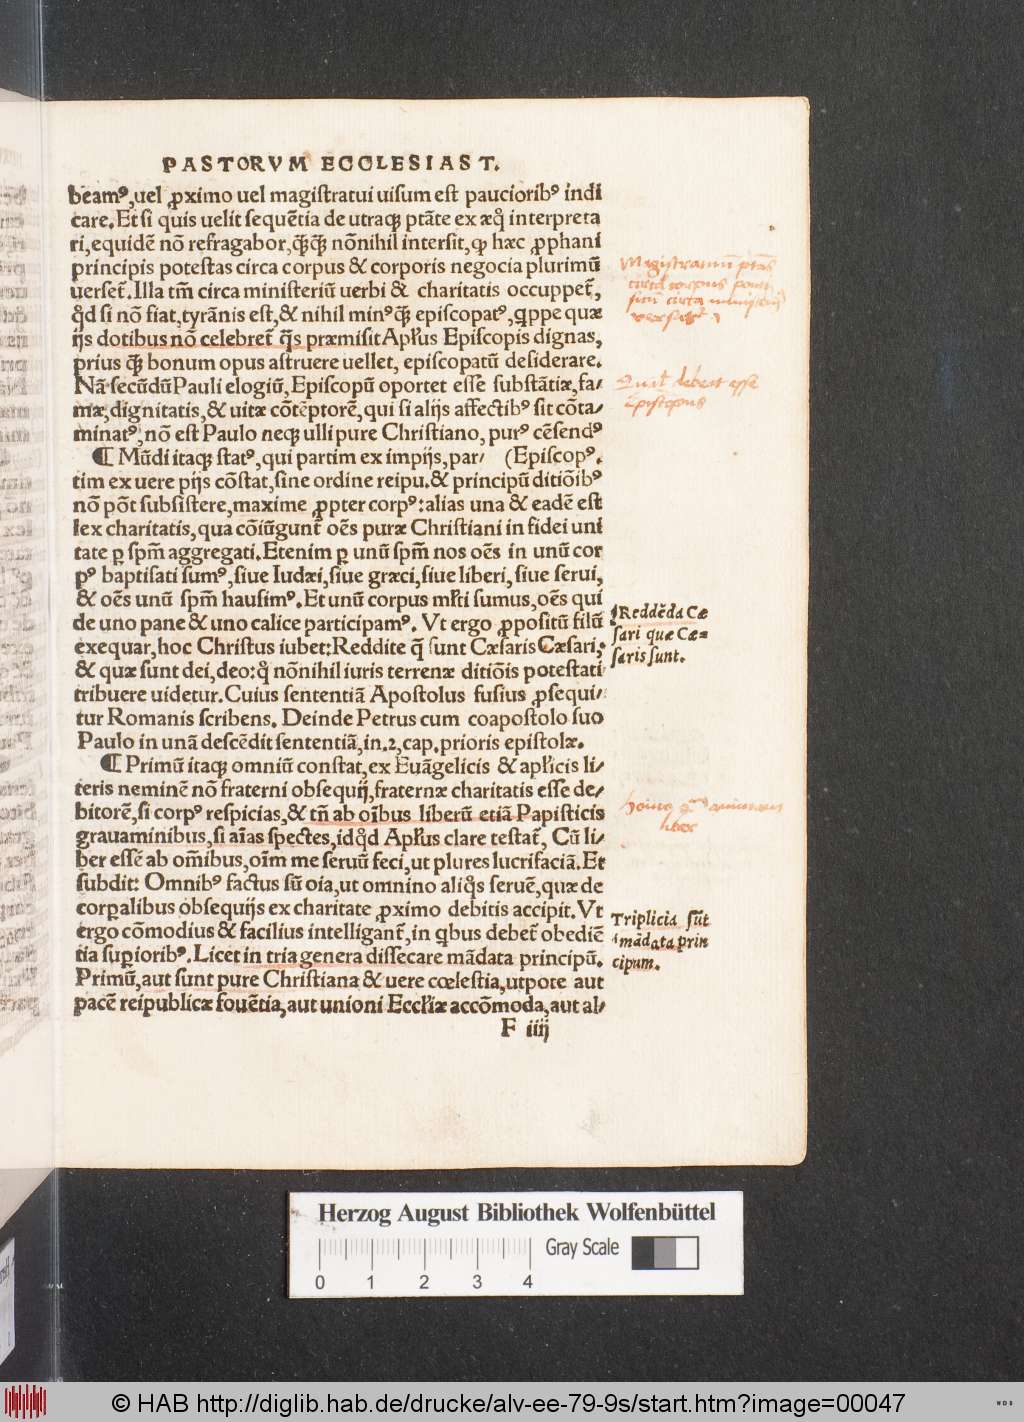 PASTORVM ECCLESIAST.
beamꝰ, uel ꝓximo uel magistratui uisum est paucioribꝰ indi
care. Et si quis uelit sequẽtia de utraqꝫ ptãte ex æq̃ interpreta
ri, equidẽ nõ refragabor, q̃q̃ nõnihil intersit, ꝙ hæc ꝓphani
principis potestas circa corpus & corporis negocia plurimũ
uerset̃. Illa tm̃ circa ministeriũ uerbi & charitatis occuppet̃,
q̃d si nõ fiat, tyrãnis est, & nihil minꝰ q̃ episcopatꝰ, ꝗppe quæ
ijs dotibus nõ celebret̃ q̃s præmisit Apłus Episcopis dignas,
prius q̃ bonum opus astruere uellet, episcopatũ desiderare.
Nã secũdũ Pauli elogiũ, Episcopũ oportet esse substãtiæ, fa⸗
mæ, dignitatis, & uitæ cõtẽptorẽ, qui si alijs affectibꝰ sit cõta⸗
minatꝰ, nõ est Paulo neqꝫ ulli pure Christiano, purꝰ cẽsendꝰ
¶ Mũdi itaqꝫ statꝰ, qui partim ex impijs, par⸗ (Episcopꝰ.
tim ex uere pijs cõstat, sine ordine reipu. & principũ ditiõibꝰ
nõ põt subsistere, maxime ꝓpter corpꝰ: alias una & eadẽ est
lex charitatis, qua cõiũgunt̃ oẽs puræ Christiani in fidei uni
tate ꝑ spm̃ aggregati. Etenim ꝑ unũ spm̃ nos oẽs in unũ cor
pꝰ baptisati sumꝰ, siue Iudæi, siue græci, siue liberi, siue serui,
& oẽs unũ spm̃ hausimꝰ. Et unũ corpus młti sumus, oẽs qui
de uno pane & uno calice participamꝰ. Vt ergo ꝓpositũ filũ
exequar, hoc Christus iubet: Reddite q̃ sunt Cæsaris Cæsari,
& quæ sunt dei, deo: q̃ nõnihil iuris terrenæ ditiõis potestati
tribuere uidetur. Cuius sententiã Apostolus fusius ꝓsequi⸗
tur Romanis scribens. Deinde Petrus cum coapostolo suo
Paulo in unã descẽdit sententiã, in. 2, cap. prioris epistolæ.
¶ Primũ itaqꝫ omniũ constat, ex Euãgelicis & apłicis li⸗
teris neminẽ nõ fraterni obsequij, fraternæ charitatis esse de⸗
bitorẽ, si corpꝰ respicias, & tñ ab oĩbus liberũ etiã Papisticis
grauaminibus, si aĩas spectes, id q̃d Apłus clare testat̃, Cũ li⸗
ber essẽ ab om̃ibus, oĩm me seruũ feci, ut plures lucrifaciã. Et
subdit: Omnibꝰ factus sũ oĩa, ut omnino aliq̃s seruẽ, quæ de
corpalibus obsequijs ex charitate ꝓximo debitis accipit. Vt
ergo cõmodius & facilius intelligant̃, in ꝗbus debet̃ obediẽ
tia suꝑioribꝰ. Licet in tria genera dissecare mãdata principũ.
Primũ, aut sunt pure Christiana & uere cœlestia, utpote aut
pacẽ reipublicæ fouẽtia, aut unioni Eccłiæ accõmoda, aut al⸗
F iiij
Magistratuũ ptãs
circa corpus ponti
ficũ circa ministeriũ
versatur
Qualis debeat esse
Episcopus
¶Reddẽda Cæ
sari quæ Cæ=
saris sunt.
homo quoad animam
liber
Triplicia sũt
mãdata prin
cipum.
Herzog August Bibliothek Wolfenbüttel
Gray Scale
0 1 2 3 4
© HAB http://diglib.hab.de/drucke/alv-ee-79-9s/start.htm?image=00047